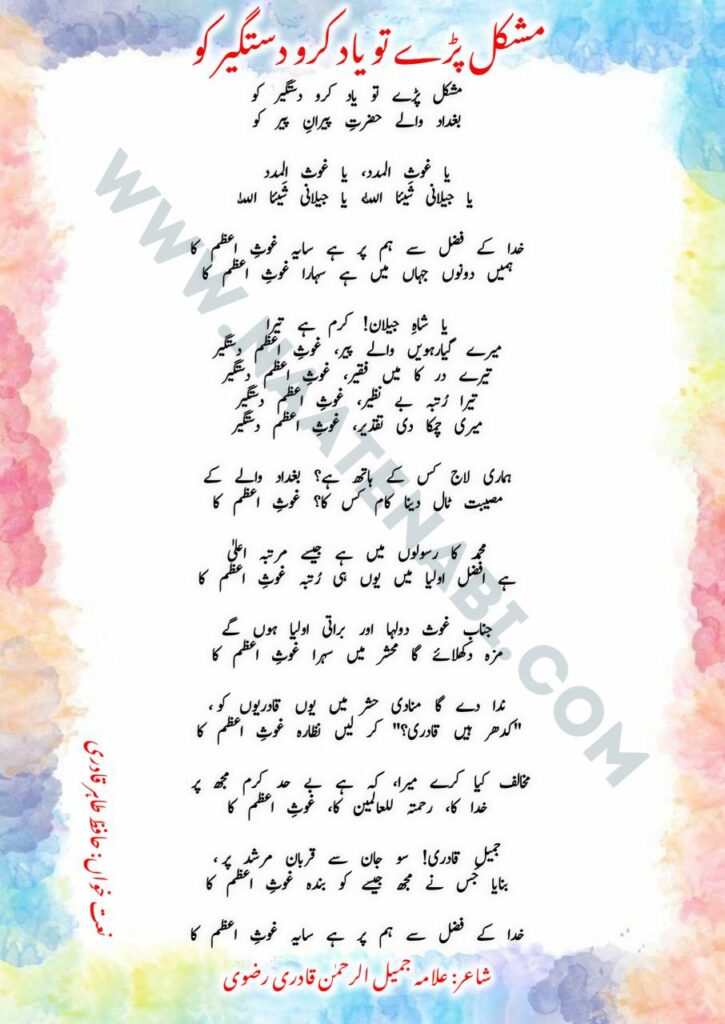 مشکل پڑے تو یاد کرو دستگیر کو
مشکل پڑے تو یاد کرو دستگیر کو
بغداد والے حضرتِ پیرانِ پیر کو
یا غوثِ المدد، یا غوث المدد
یا جیلانی شَیئًا اللہ یا جیلانی شَیئًا اللہ
خدا کے فضل سے ہم پر ہے سایہ غوثِ اعظم کا
ہمیں دونوں جہاں میں ہے سہارا غوثِ اعظم کا
یا شاہِ جیلان! کرم ہے تیرا
میرے گیارہویں والے پیر، غوثِ اعظم دستگیر
تیرے در کا میں فقیر، غوثِ اعظم دستگیر
تیرا رُتبہ بے نظیر، غوثِ اعظم دستگیر
میری چمکا دی تقدیر، غوثِ اعظم دستگیر
ہماری لاج کس کے ہاتھ ہے؟ بغداد والے کے
مصیبت ٹال دینا کام کس کا؟ غوثِ اعظم کا
محمد کا رسولوں میں ہے جیسے مرتبہ اعلیٰ
ہے افضل اولیا میں یوں ہی رُتبہ غوثِ اعظم کا
جنابِ غوث دولہا اور براتی اولیا ہوں گے
مزہ دکھلائے گا محشر میں سہرا غوثِ اعظم کا
ندا دے گا منادی حشر میں یوں قادریوں کو،
"کدھر ہیں قادری؟" کر لیں نظارہ غوثِ اعظم کا
مخالف کیا کرے میرا، کہ ہے بے حد کرم مجھ پر
خدا کا، رحمتہ للعالمین کا، غوثِ اعظم کا
جمیلِ قادری! سو جان سے قربان مرشد پر،
بنایا جس نے مجھ جیسے کو بندہ غوثِ اعظم کا
خدا کے فضل سے ہم پر ہے سایہ غوثِ اعظم کا
شاعر: علامہ جمیل الرحمٰن قادری رضوی
نعت خواں: حافظ طاہر قادری
WWW.NAATENABI.COM